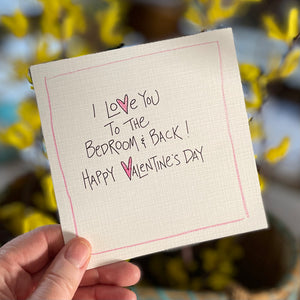 I LOVE YOU
TO THE
BEDROOM & BACK!
HAPPY VALENTINE'S DAY